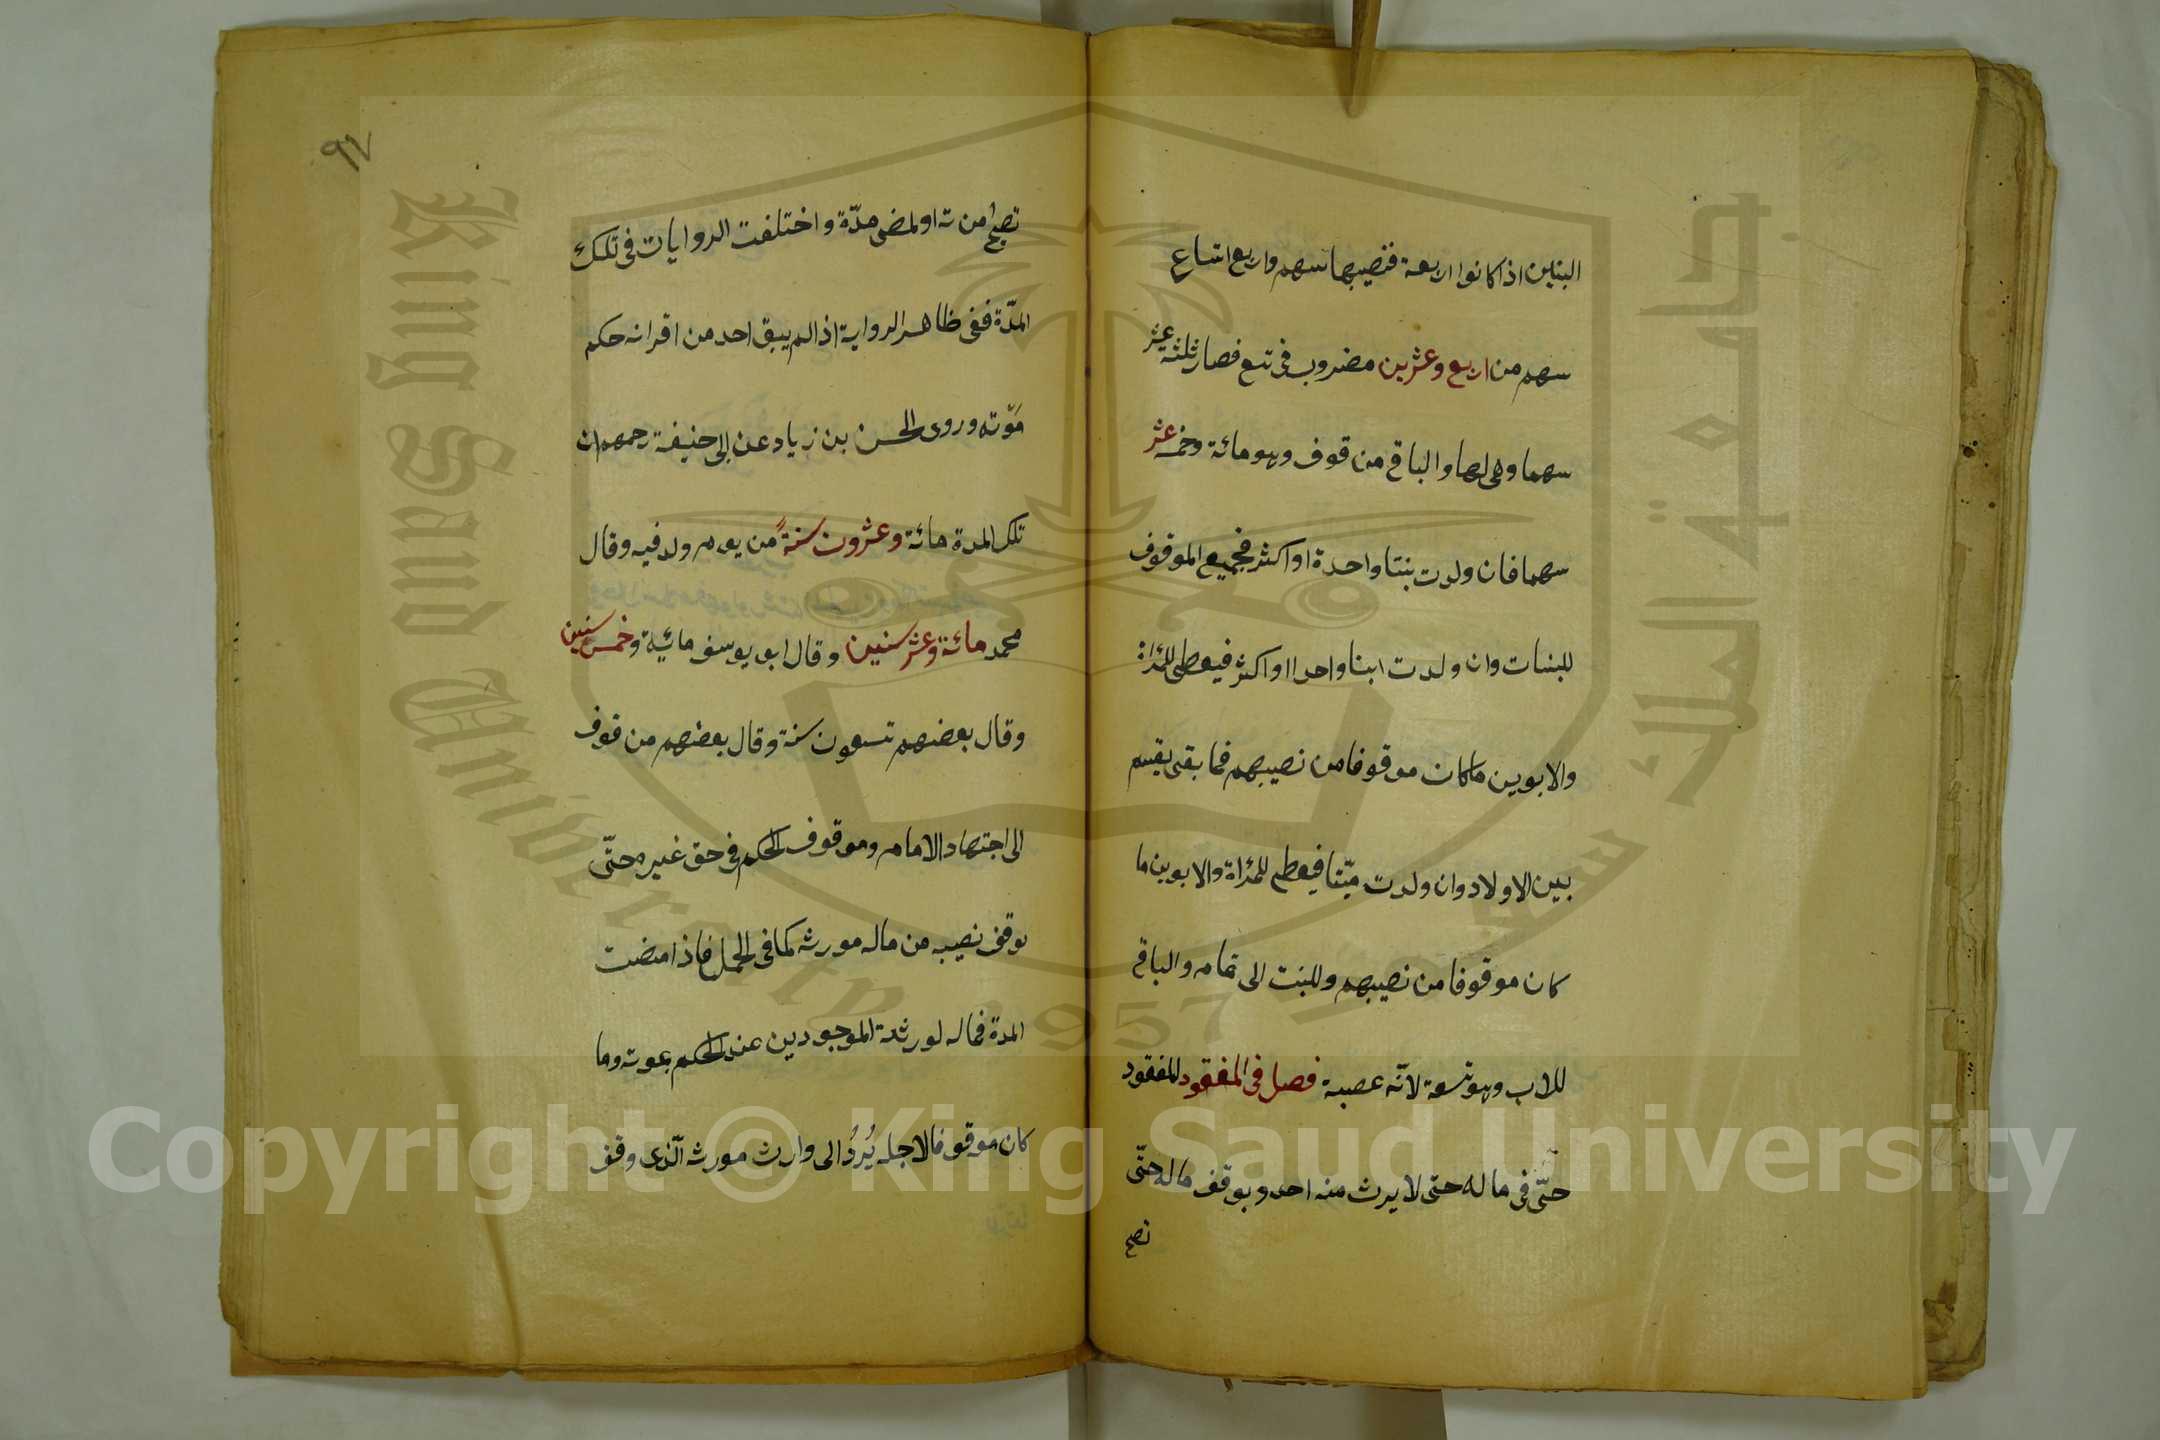 البنين اذا كانوا اربعة فنصيبها سهم واربع اتساع
سهم من اربع وعشرين مضروب فى تسع فصار ثلثة عشر
سهما وهى لها والباقى من قوف وهو مائة وخمسة عشر
سهما فان ولدت بنتا واحدة او اكثر فجميع الموقوف
للبنات وان ولدت ابنا واحدا او اكثر فيعطى للمراة
والابوين ما كان موقوفا من نصيبهم فما بقى يقسم
بين الاولاد وان ولدت ميّتا فيعطى للمراة والابوين ما
كان موقوفا من نصيبهم وللبنت الى تمامه والباقى
للاب وهو تسعة لانّه عصبة فصل فى المفقود المفقود
حىّ فى ماله حتى لا يرث منه احد ويوقف ماله حتّى
تصح
٩٧
تصح من ته او لمضى مدّة واختلفت الروايات فى تلك
المدّة ففى ظاهر الرواية اذا لم يبق احد من اقرانه حكم
موّته وروى الحسن بن زياد عن ابى حنيفة رحمهم ان
تلك المدة مائة وعشرون سنة من يوم ولد فيه وقال
محمد مائة وعشر سنين وقال ابو يوسف مائة وخمس سنين
وقال بعضهم تسعون سنة وقال بعضهم من قوف
الى اجتهاد الامام وموقوف الحكم فى حق غيره حتّى
يوقف نصيبه من مال مورثه كما فى الحمل فاذا مضت
المدة فماله لورثته الموجودين عند الحكم بموته وما
كان موقوفا لاجله يُردُ الى وارث مورثه الّذى وقف
King Saud University
جامعة الملك سعود
1957
Copyright © King Saud University